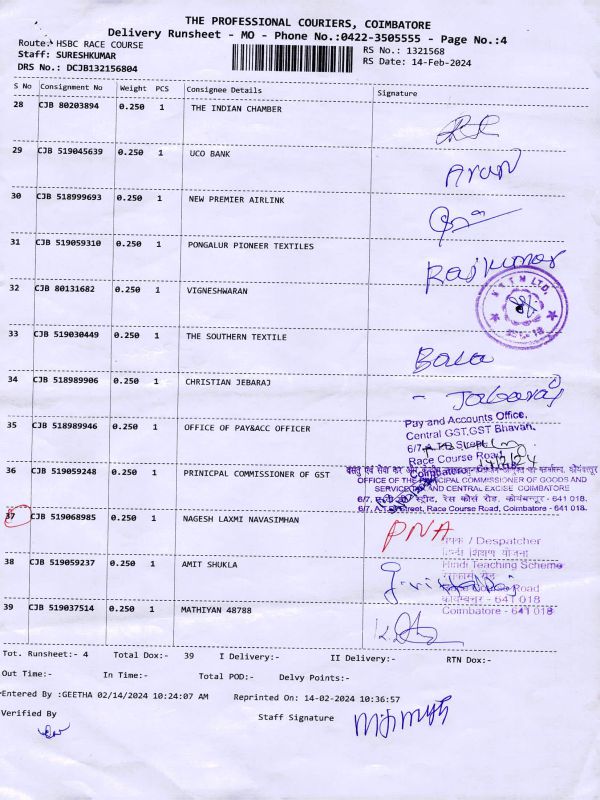 THE PROFESSIONAL COURIERS, COIMBATORE
Delivery Runsheet - MO - Phone No.:0422-3505555 - Page No.:4
Route: HSBC RACE COURSE
RS No.: 1321568
Staff: SURESHKUMAR
RS Date: 14-Feb-2024
DRS No.: DCJB132156804
S No Consignment No Weight PCS Consignee Details Signature
28 CJB 80203894 0.250 1 THE INDIAN CHAMBER
29 CJB 519045639 0.250 1 UCO BANK
Arun
30 CJB 518999693 0.250 1 NEW PREMIER AIRLINK
31 CJB 519059310 0.250 1 PONGALUR PIONEER TEXTILES
Rajkumar
32 CJB 80131682 0.250 1 VIGNESHWARAN
N.T.T.M LTD.
33 CJB 519030449 0.250 1 THE SOUTHERN TEXTILE
Bala
34 CJB 518989906 0.250 1 CHRISTIAN JEBARAJ
- Jabaraj
35 CJB 518989946 0.250 1 OFFICE OF PAY&ACC OFFICER
Pay and Accounts Office,
Central GST,GST Bhavan,
6/7, A.T.D. Street
Race Course Road
Coimbatore
36 CJB 519059248 0.250 1 PRINICIPAL COMMISSIONER OF GST
OFFICE OF THE PRINCIPAL COMMISSIONER OF GOODS AND
SERVICE TAX AND CENTRAL EXCISE COIMBATORE
स्ट्रीट, रेस कोर्स रोड, कोयंबत्तूर - 641 018.
6/7, A.T.D. Street, Race Course Road, Coimbatore - 641 018.
37 CJB 519068985 0.250 1 NAGESH LAXMI NAVASIMHAN
PNA
/ Despatcher
हिन्दी शिक्षण योजना
Hindi Teaching Scheme
38 CJB 519059237 0.250 1 AMIT SHUKLA
Race Course Road
641 018
Coimbatore - 641 018
39 CJB 519037514 0.250 1 MATHIYAN 48788
Tot. Runsheet:- 4 Total Dox:- 39 I Delivery:- II Delivery:- RTN Dox:-
Out Time:- In Time:- Total POD:- Delvy Points:-
Entered By :GEETHA 02/14/2024 10:24:07 AM Reprinted On: 14-02-2024 10:36:57
Verified By Staff Signature